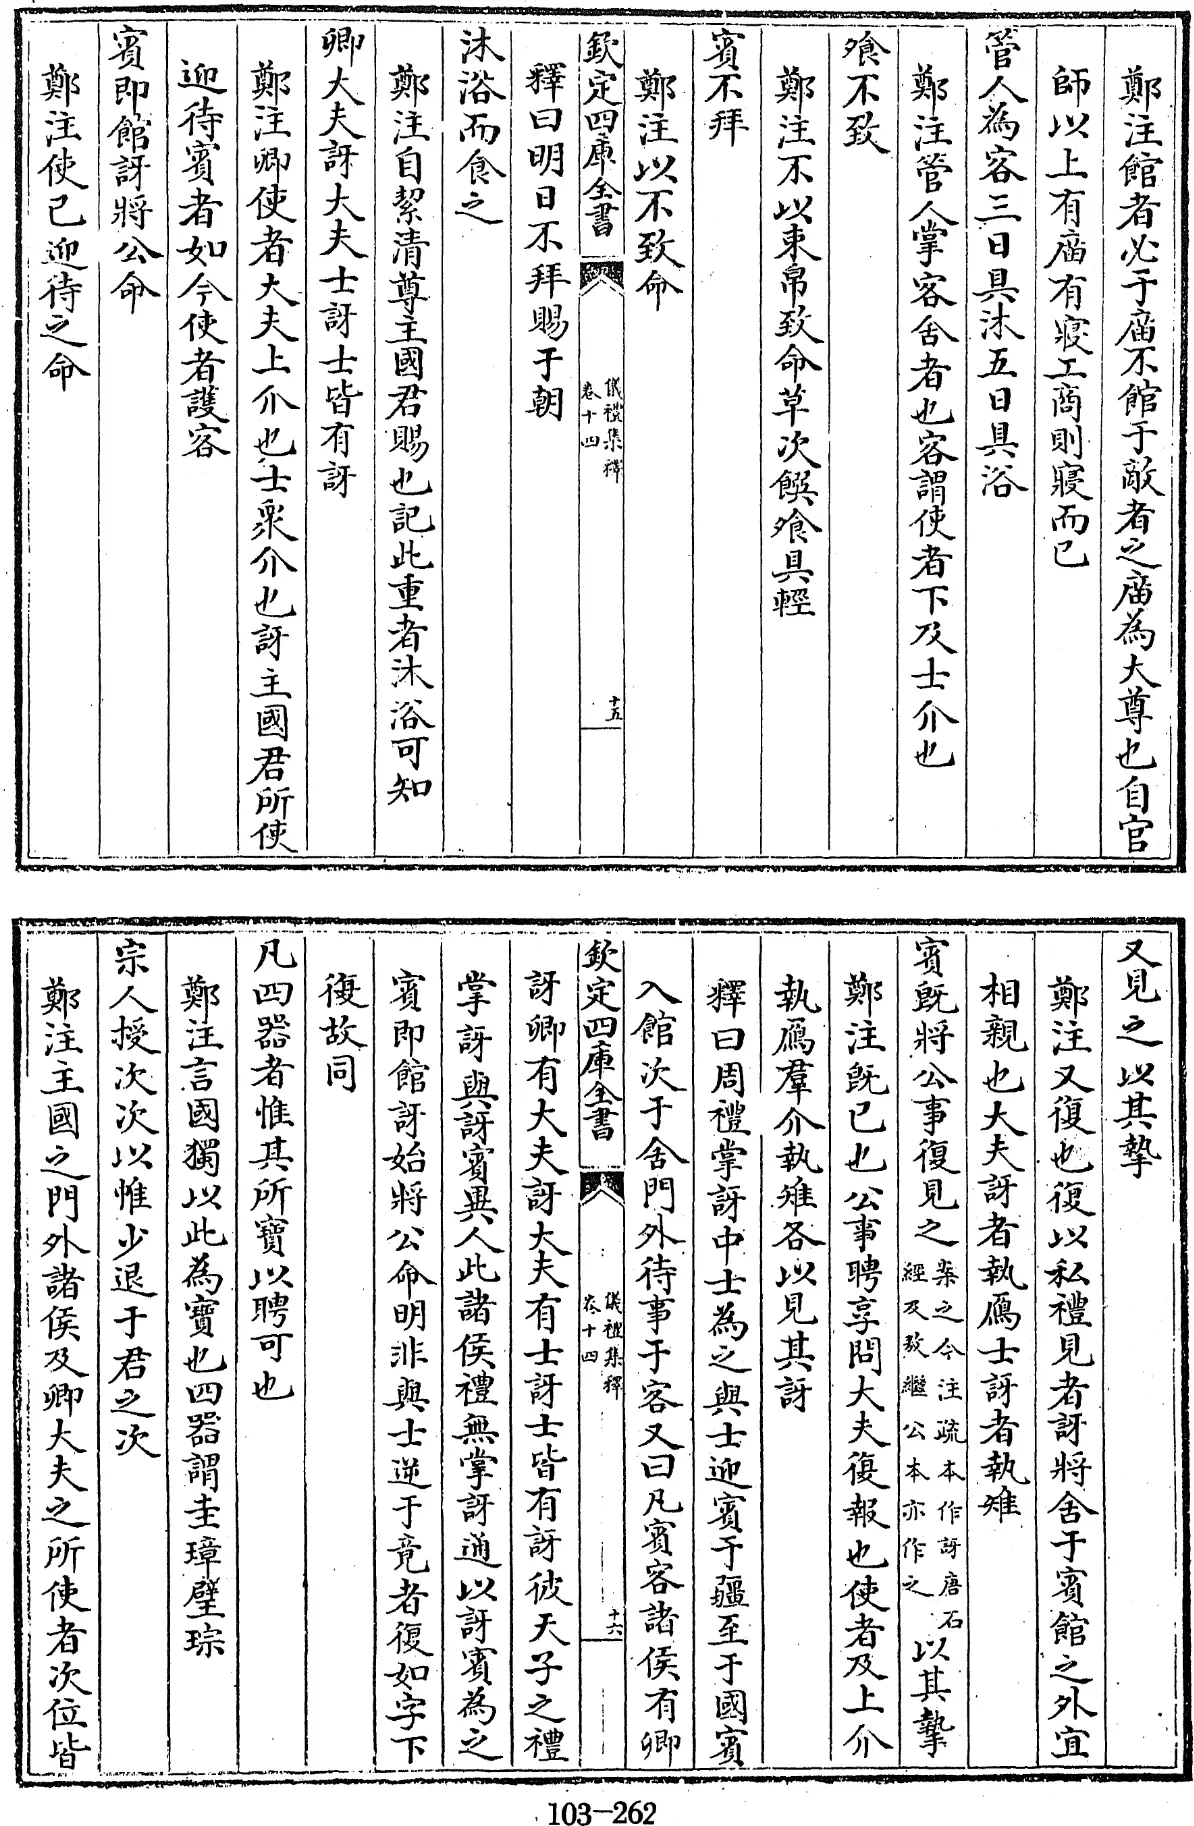 鄭注館者必于廟不館于敵者之廟為大尊也自官
師以上有廟有寢工商則寢而已
管人為客三日具沐五日具浴
鄭注管人掌客舍者也客謂使者下及士介也
飧不致
鄭注不以束帛致命草次饌飧具輕
賓不拜
鄭注以不致命
欽定四庫全書
儀禮集釋
卷十四
十五
釋曰明日不拜賜于朝
沐浴而食之
鄭注自絜清尊主國君賜也記此重者沐浴可知
卿大夫訝大夫士訝士皆有訝
鄭注卿使者大夫上介也士衆介也訝主國君所使
迎待賓者如今使者護客
賓即館訝將公命
鄭注使己迎待之命
又見之以其摯
鄭注又復也復以私禮見者訝將舍于賓館之外宜
相親也大夫訝者執鴈士訝者執雉
賓既將公事復見之案之今注疏本作訝唐石經及敖繼公本亦作之以其摯
鄭注既已也公事聘享問大夫復報也使者及上介
執鴈羣介執雉各以見其訝
釋曰周禮掌訝中士為之與士迎賓于疆至于國賓
入館次于舍門外待事于客又曰凡賓客諸侯有卿
欽定四庫全書
儀禮集釋
卷十四
十六
訝卿有大夫訝大夫有士訝士皆有訝彼天子之禮
掌訝與訝賓異人此諸侯禮無掌訝通以訝賓為之
賓即館訝始將公命明非與士逆于竟者復如字下
復故同
凡四器者惟其所寶以聘可也
鄭注言國獨以此為寶也四器謂圭璋璧琮
宗人授次次以帷少退于君之次
鄭注主國之門外諸侯及卿大夫之所使者次位皆
103-262